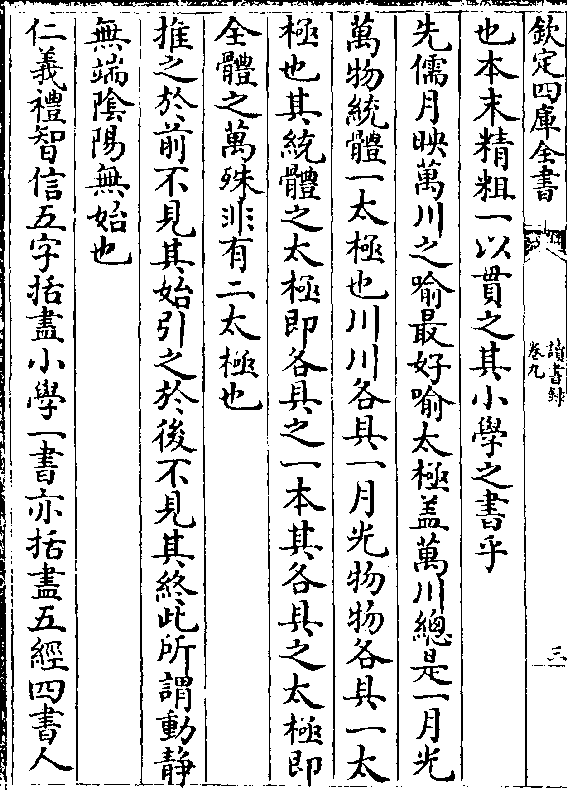 欽定四庫全書
讀書録
卷九
三
也本末精粗一以貫之其小學之書乎
先儒月映萬川之喻最好喻太極盖萬川總是一月光
萬物統體一太極也川川各具一月光物物各具一太
極也其統體之太極即各具之一本其各具之太極即
全體之萬殊非有二太極也
推之於前不見其始引之於後不見其終此所謂動静
無端隂陽無始也
仁義禮智信五字括盡小學一書亦括盡五經四書人